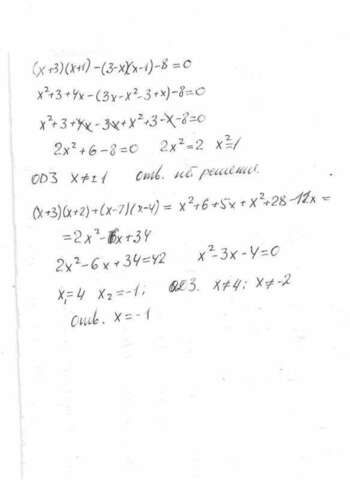 (x+3)(x+1)-(3-x)(x-1)-8=0
x²+3+4x-(3x-x²-3+x)-8=0
x²+3+4x-3x+x²+3-x-8=0
2x²+6-8=0 2x²=2 x²=1
ОДЗ x≠±1 Отв. нет решения.
(x+3)(x+2)+(x-7)(x-4)=x²+6+5x+x²+28-12x=
=2x²-6x+34
2x²-6x+34=42 x²-3x-4=0
x₁=4 x₂=-1; ОДЗ. x≠4; x≠-2
Отв. x=-1